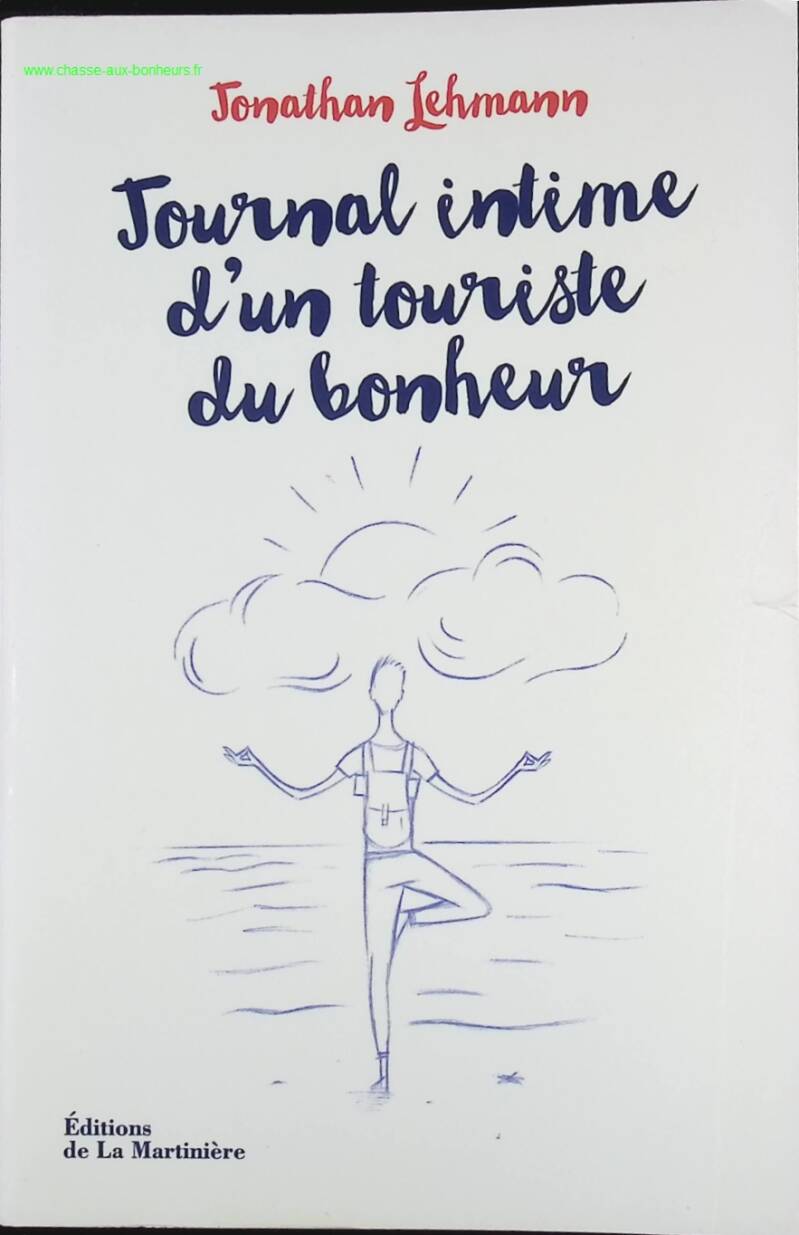 www.chasse-aux-bonheurs.fr
Jonathan Lehmann
Journal intime
d'un touriste
du bonheur
Éditions
de La Martinière